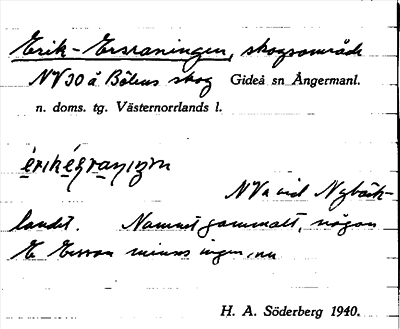 Erik-Ersraningen, skogsområde
NV 30 å Bölens skog Gideå sn Ångermanl.
n. doms. tg. Västernorrlands l.
NVa vid Nybäck-
landet. Namnet gammalt, någon
E Ersson minns ingen nu
H. A. Söderberg 1940.